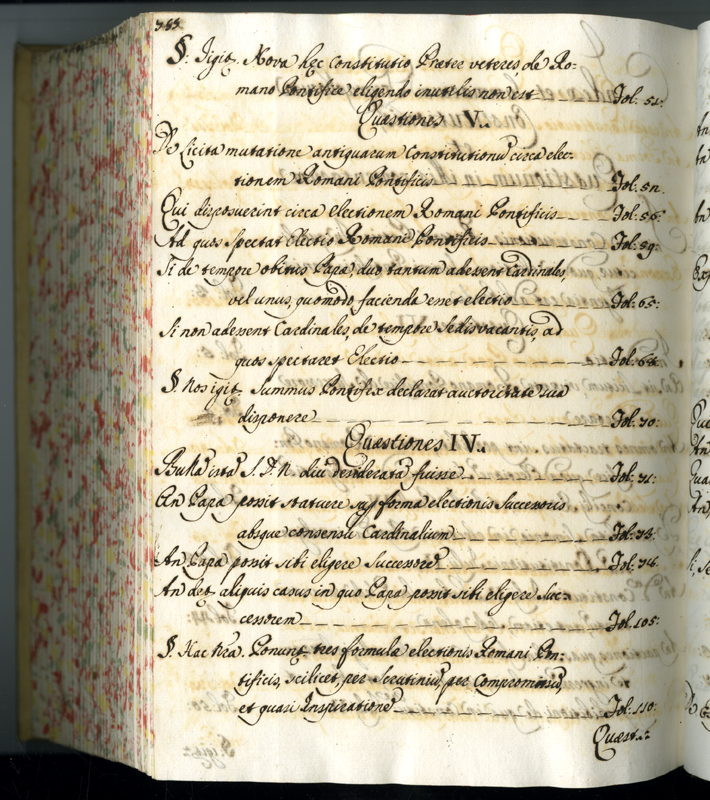 §. Igit. Nova hęc Constitutio Præter veteres de Ro-
mano Pontifice eligendo inutilis non est Fol: 51.
Quæstiones V.
De Licita mutatione antiquarum Constitutionū circa elec-
tionem Romani Pontificis Fol: 5n.
Qui disposuerint circa electionem Romani Pontificis Fol: 56.
Ad quos spectat Electio Romani Pontificis Fol: 59:
Si de tempore obitus Papæ, duo tantum adessent Cardinales,
vel unus, quomodo facienda esset electio Fol: 65:
Si non adessent Cardinales, de tempore Sedis vacantis, ad
quos spectaret Electio Fol: 68.
§. Nos igit. Summus Pontifix declarat auctoritate sua
disponere Fol: 70:
Quæstiones IV.
Bullā istā S. D. N. diu desideratā fuisse Fol: 71:
An Papa possit statuere sup forma electionis Successoris
absque consensu Cardinalium Fol: 73.
An Papa possit sibi eligere Successorē Fol: 76.
An det aliquis casus in quo Papa possit sibi eligere Suc-
cessorem Fol: 105:
§. Hac nra. Ponunt tres formulæ electionis Romani Pon-
tificis, scilicet, per Scrutiniū, per Compromissū,
et quasi Inspirationē Fol: 110:
Quæst.